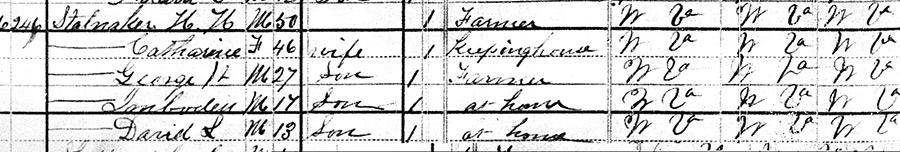 246 Stalnaker H. H M 50 1 Farmer W Va W Va W Va
— Catharine F 46 wife 1 Keepinghouse W Va W Va W Va
— George W M 27 Son 1 Farmer W Va W Va W Va
— Imboden M 17 Son 1 at home W Va W Va W Va
— David S M 13 Son 1 at home W Va W Va W Va